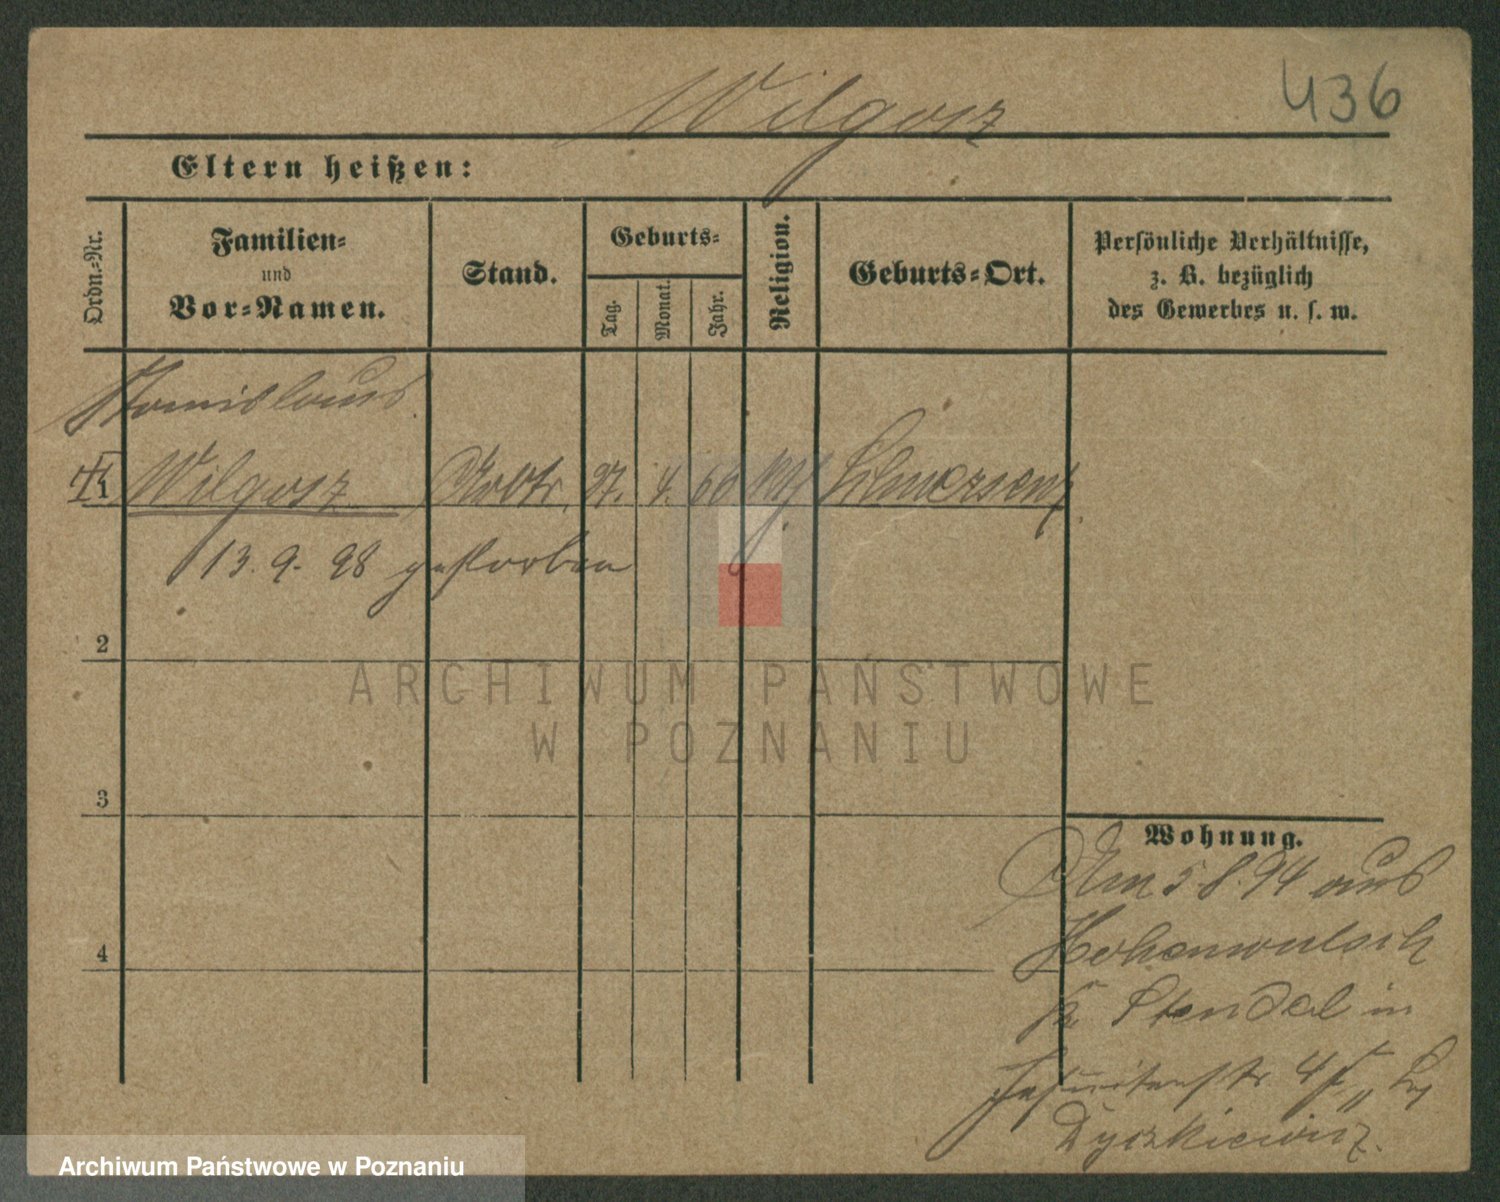 Wilgosz
436
Eltern heißen:
Ordn.-Nr.
Familien-
und
Vor-Namen.
Stand.
Geburts-
Tag.
Monat.
Jahr.
Religion.
Geburts-Ort.
Persönliche Verhältnisse,
z. B. bezüglich
des Gewerbes u. s. w.
Stanislaus
1 Wilgosz 27. 4. 66
13. 9. 98 gestorben
2
3
4
Wohnung.
Am 5.8.94 aus
Hohenwulsch
Kr. Stendal in
Jesuitenstr 4
Dyszkiewicz.
ARCHIWUM PAŃSTWOWE
W POZNANIU
Archiwum Państwowe w Poznaniu